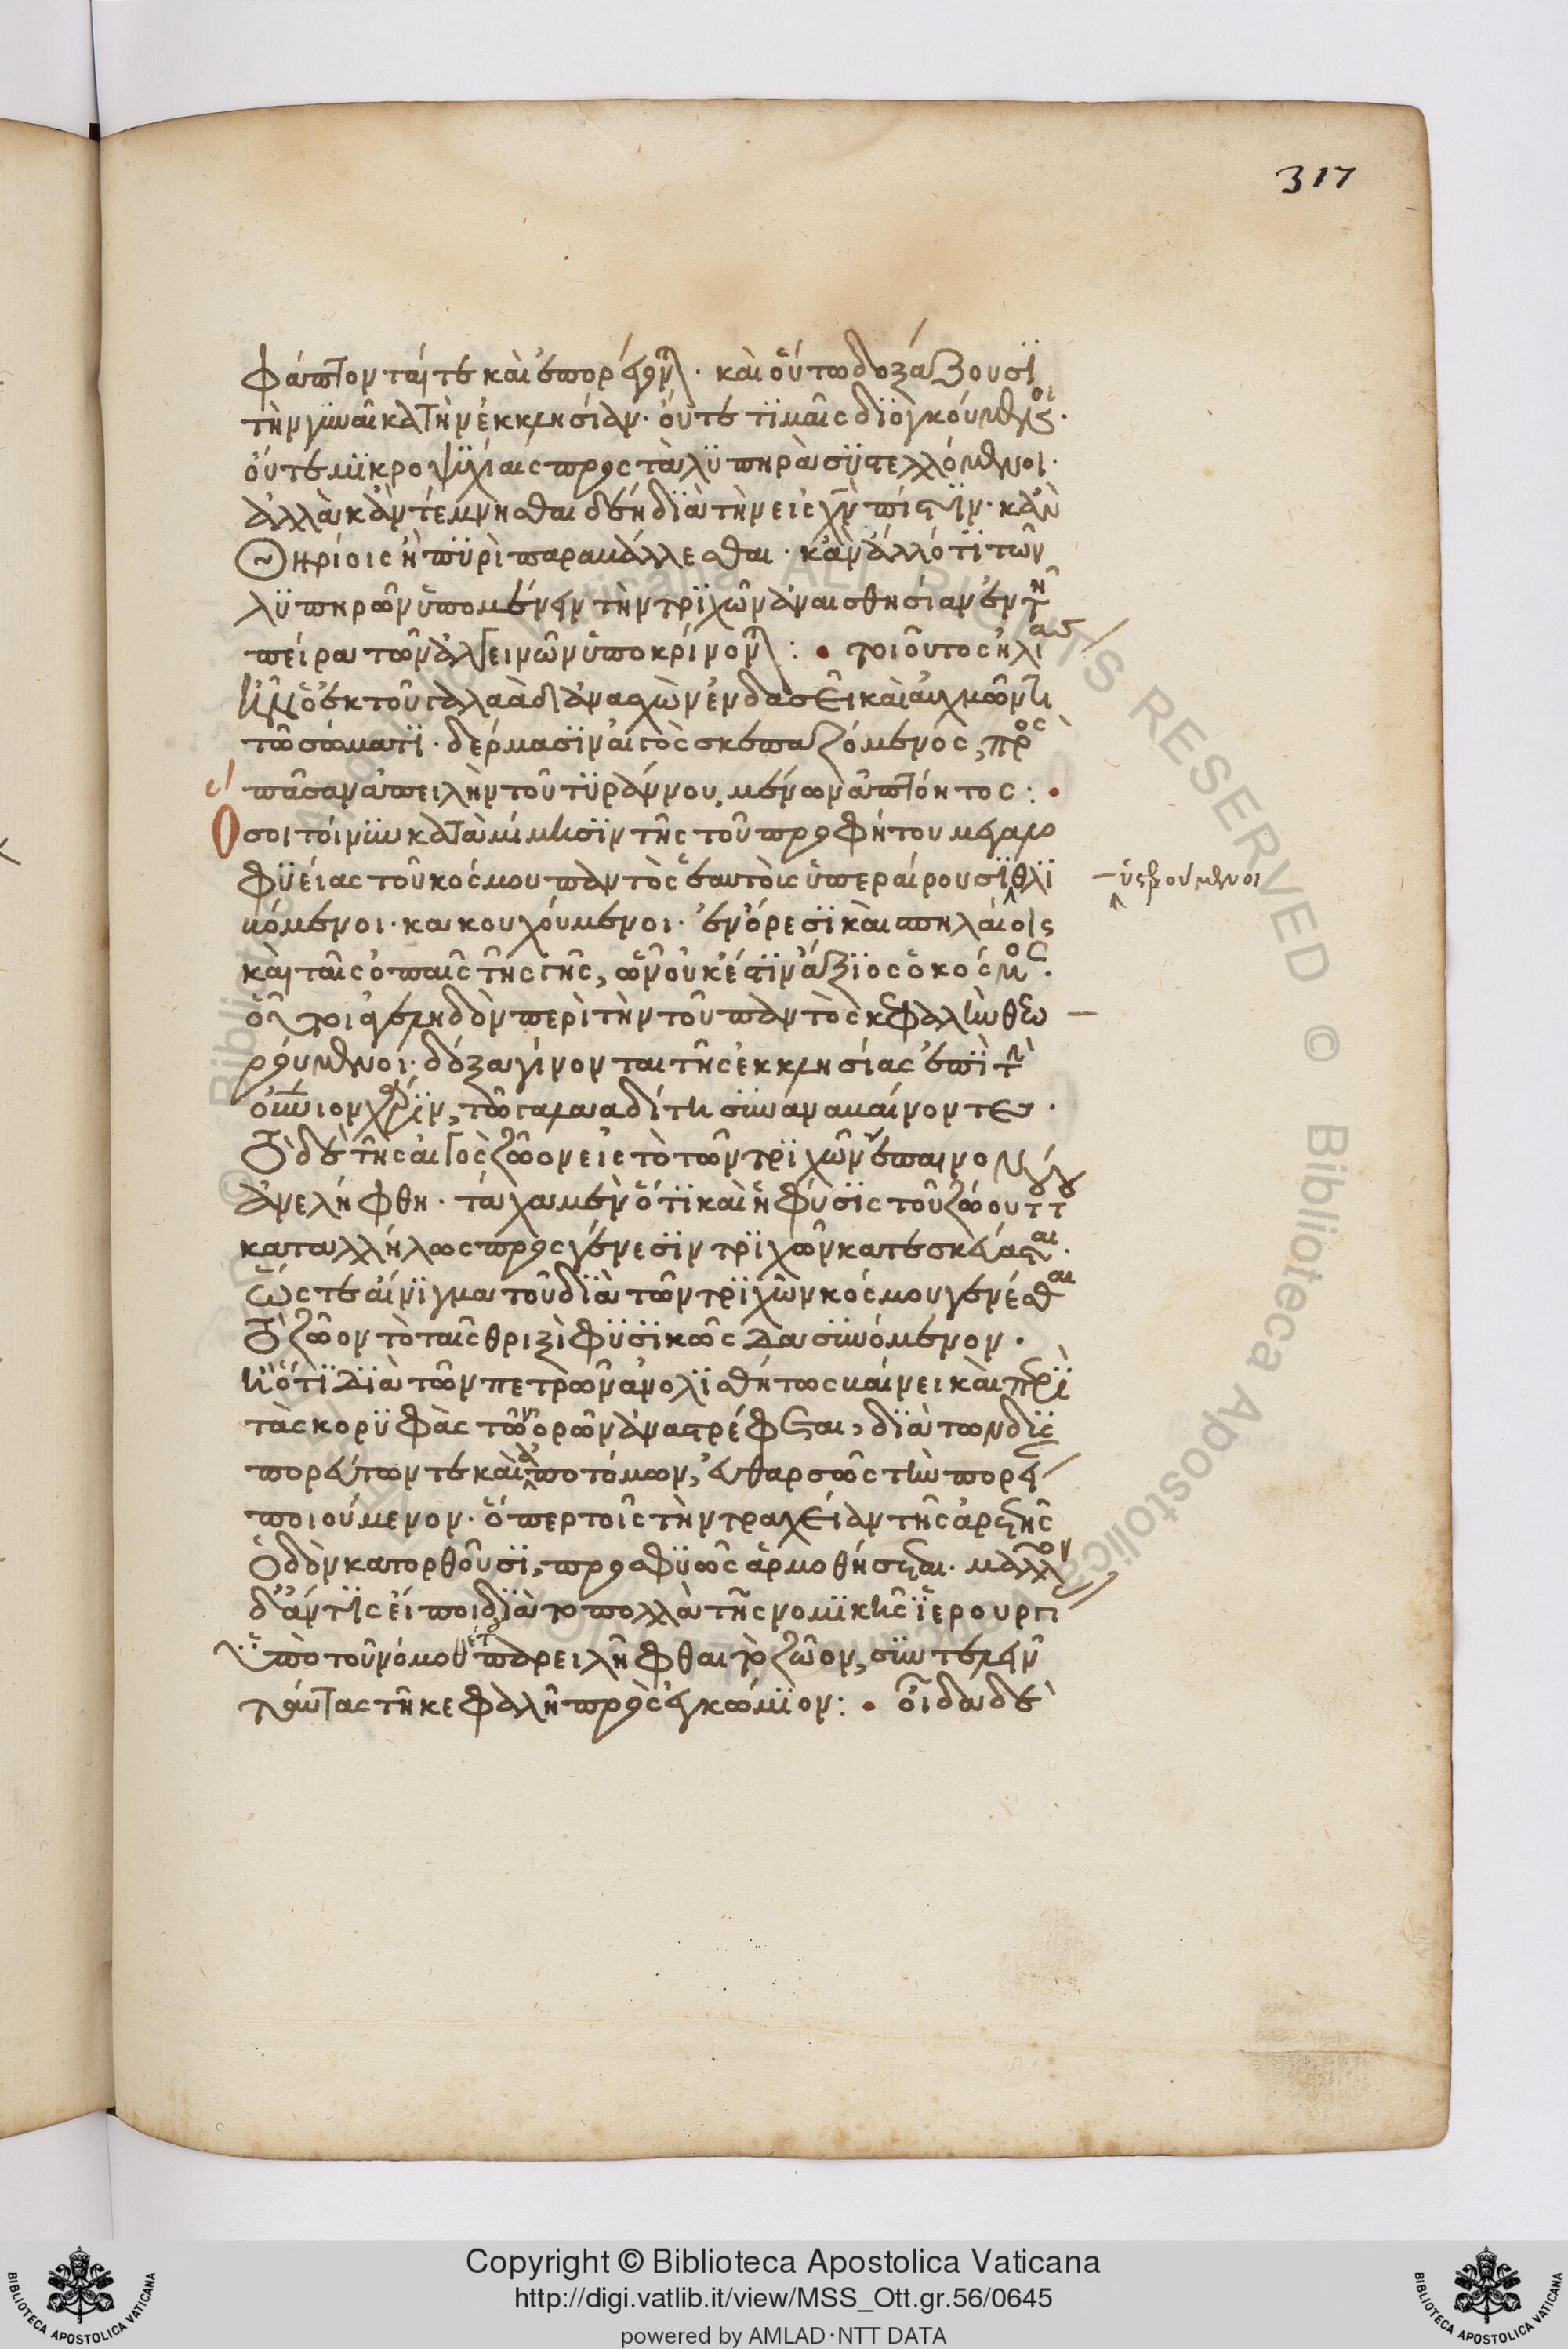 317
φάπτονταί τε καὶ ἐπορεύοντ. καὶ οὕτω δοξάζουσϊ
τὴν γυναῖκα τὴν ἐκκλησίαν. οὔτε τϊμαῖς διογκούμενοι.
οὔτε μϊκροψϋχίαις πρὸς τὰ λϋπηρὰ σϋστελλόμενοι.
ἀλλὰ κἂν τέμνησθαι δέῃ διὰ τὴν εἰς χν πίστϊν. κἂν
θηρίοις ἢ πϋρὶ παραβάλλεσθαι. κἂν ἄλλό τϊ τῶν
λϋπηρῶν ὑπομένειν τὴν τρϊχῶν ἀναισθησίαν ἐν τῆ
πείρα τῶν ἀλγεινῶν ὑποκρίνοντ : • τοιοῦτος ἠλίας
ἦν ὁ ἐκ τοῦ γαλαὰδ ἀνασχὼν ἐν δασεῖ καὶ αὐχμῶντι
τῶ σώματϊ. δέρμασϊν αἰγὸς σκεπαζόμενος, πρὸς
πᾶσαν ἀπειλὴν τοῦ τϋράννου μένων ἀπτόητος : •
Ὅσοι τοίνυν κατὰ μίμησϊν τῆς τοῦ προφήτου μεγαλο
φϋείας τοῦ κόσμου παντὸς ἑαυτοὺς ὑπεραίρουσϊ θλϊ
– ὑστερούμενοι
βόμενοι. κακουχούμενοι. ἐν ὄρεσϊ καὶ σπηλαίοις
καὶ ταῖς ὀπαῖς τῆς γῆς, ὧν οὐκ ἔστϊν ἄξϊος ὁ κόσμος.
οἱ τοιοῦτοι ἀγεληδὸν περὶ τὴν τοῦ παντὸς κεφαλὴν θεω
ρούμενοι. δόξα γίνονται τῆς ἐκκλησίας ἐπὶ τὴν
οὐράνιον χάριν, τῶ γαλααδίτη συναναβαίνοντες.
Τὸ δὲ τῆς αἰγὸς ζῶον εἰς τὸ τῶν τρϊχῶν ἔπαινον
ἀνελήφθη. τάχα μὲν ὅτϊ καὶ ἡ φύσϊς τοῦ ζώου τούτου
καταλλήλως πρὸς γένεσϊν τρϊχῶν κατεσκεύασται.
ὥστε αἴνϊγμα τοῦ διὰ τῶν τρϊχῶν κόσμου γενέσθαι
τὸ ζῶον τὸ ταῖς θριξὶ φϋσϊκῶς δασυνόμενον.
ἢ ὅτϊ διὰ τῶν πετρῶν ἀνολϊσθήτως βαίνει καὶ περὶ
τὰς κορϋφὰς τῶν ὀρῶν ἀναστρέφεται, διὰ τῶν δυσ
πορεύτων τε καὶ ἀποτόμων, εὐθαρσῶς τὴν πορείαν
ποιούμενον. ὅπερ τοῖς τὴν τραχεῖαν τῆς ἀρετῆς
ὁδὸν κατορθοῦσϊ, προσφϋῶς ἁρμοσθήσεται. μᾶλλον
δ' ἄν τϊς εἴποι διὰ τὸ πολλὰ τῆς νομϊκῆς ἱερουργί
ὑπὸ τοῦ νομοθέτου παρειλῆφθαι τὸ ζῶον, συντελεῖν
ταύτας τῆ κεφαλῆ πρὸς ἐγκώμϊον : • οἶδα δὲ
Copyright © Biblioteca Apostolica Vaticana
http://digi.vatlib.it/view/MSS_Ott.gr.56/0645
powered by AMLAD·NTT DATA
BIBLIOTECA APOSTOLICA VATICANA
BIBLIOTECA APOSTOLICA VATICANA